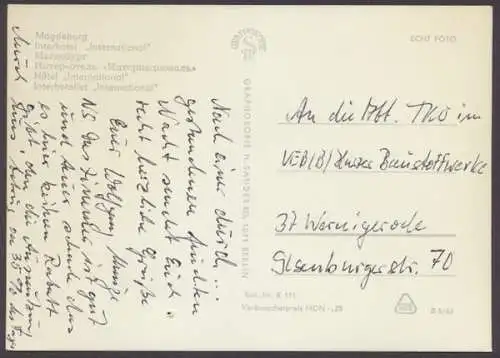 Magdeburg
Interhotel „International"
Магдебург
Интер-отель «Интернациональ»
Hôtel „International"
Interhotellet „International"
ECHT FOTO
GRAPHOKOPIE H. SANDER KG, 1071 BERLIN
Nach einer durch...
gestandenen fünften
Nacht sendet Euch
recht herzliche Grüße
Euer Wolfgang
NS Das Zimmer ist gut
und teuer schade das
es hier keinen Rabatt
gibt, denn die Ausnutzung
ca 35 %
An die Abt. TKO im
VEB(B) Harzer Baustoffwerke
37 Wernigerode
Ilsenburgerstr. 70
Best.-Nr. K 171
Verbraucherpreis MDN -,25